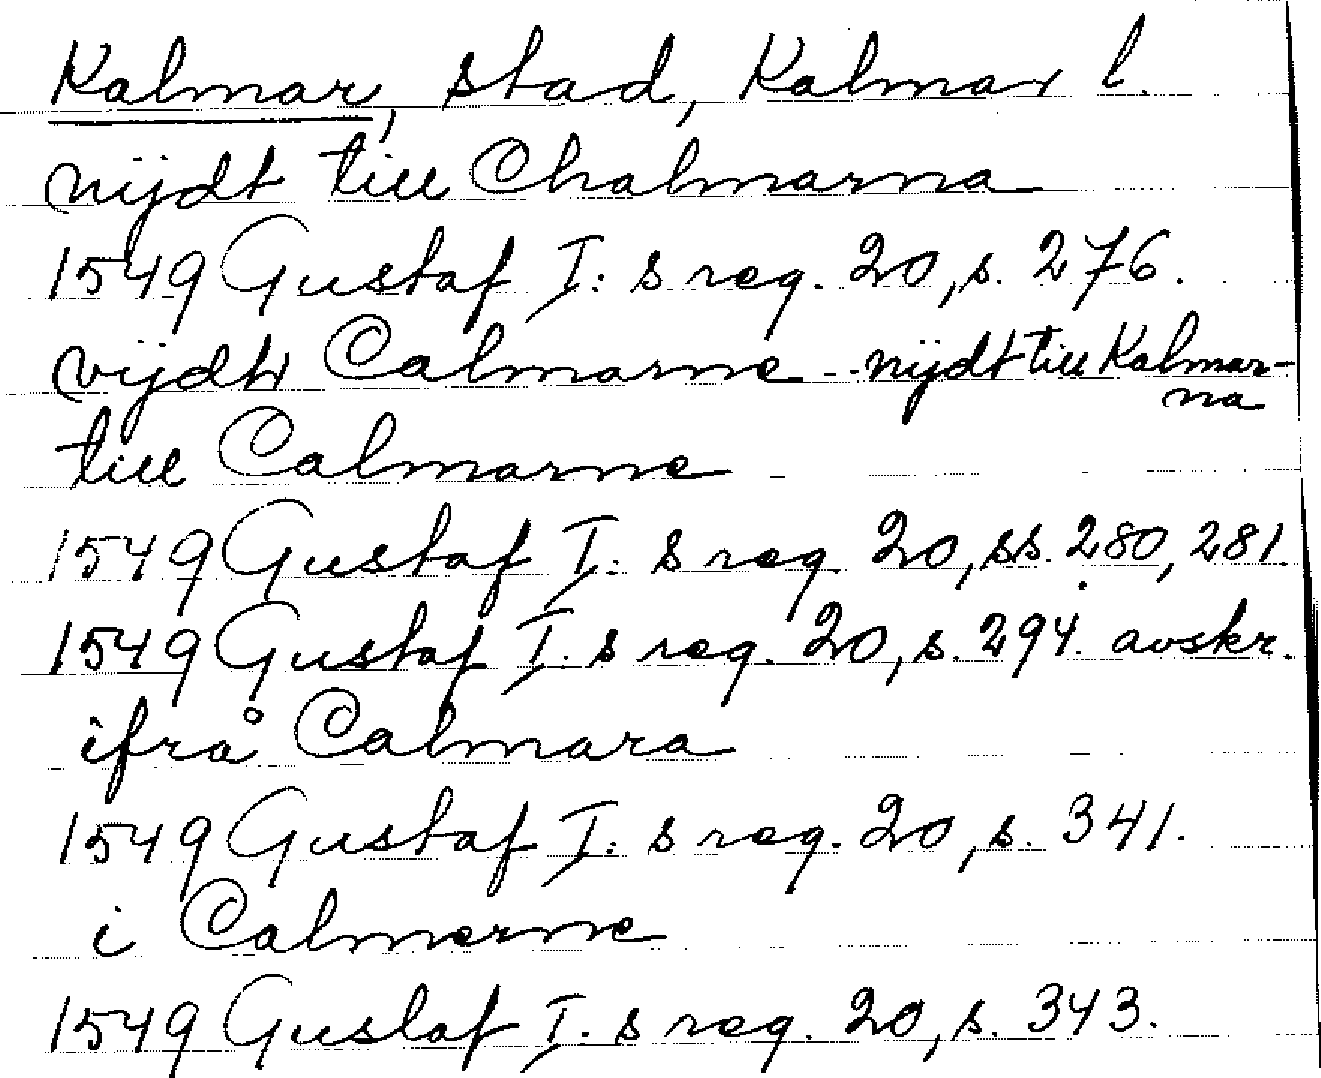 Kalmar, stad, Kalmar l.
nijdt till Chalmarna
1549 Gustaf I:s reg. 20, s. 276.
vijdh Calmarne - nijdt till Kalmar-
na
till Calmarne
1549 Gustaf I:s reg. 20, ss. 280, 281.
1549 Gustaf I.s reg. 20, s. 294. avskr.
ifrå Calmara
1549 Gustaf I:s reg. 20, s. 341.
i Calmerne
1549 Gustaf I.s reg. 20, s. 343.